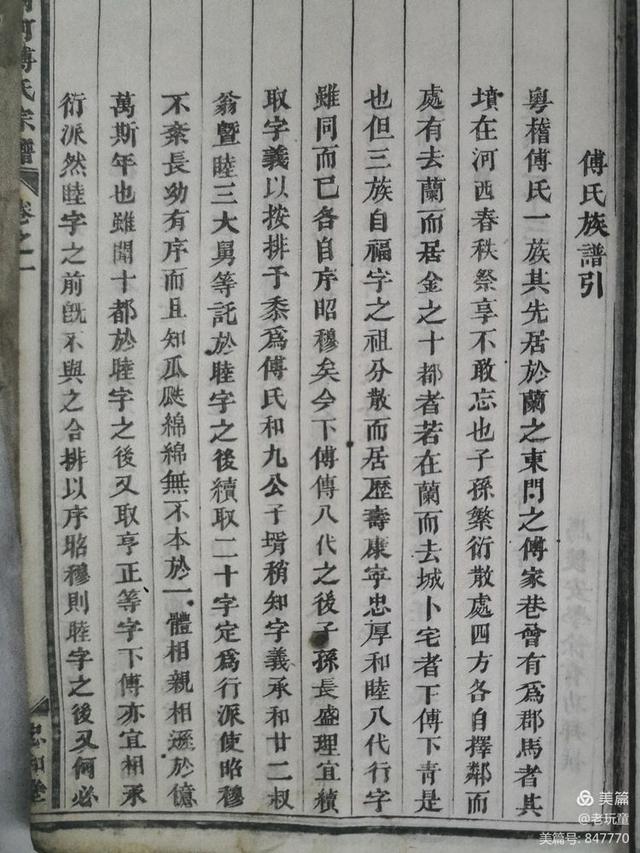 傅氏族譜引
粵稽傅氏一族其先居於蘭之東門之傅家巷曾有為郡馬者其
墳在河西春秩祭享不敢忘也子孫繁衍散處四方各自擇鄰而
處有去蘭而居金之十都者若在蘭而去城卜宅者下傅下青是
也但三族自福字之祖分散而居歷壽康寧忠厚和睦八代行字
雖同而已各自序昭穆矣今下傅傳八代之後子孫長盛理宜續
取字義以按排予忝為傅氏和九公子壻稍知字義承和廿二叔
翁暨睦三大舅等託於睦字之後續取二十字定為行派使昭穆
不紊長幼有序而且知瓜瓞綿綿無不本於一體相親相遜於億
萬斯年也雖聞十都於睦字之後又取亨正等字下傳亦宜相承
衍派然睦字之前旣不與之合排以序昭穆則睦字之後又何必
河傅氏宗譜
卷之一
忠和堂
美篇
@老玩童
美篇号: 847770